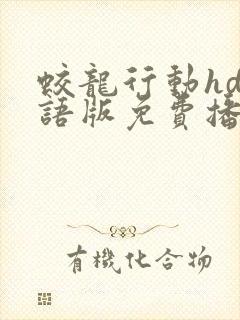 蛟龍行動hd
語版免費播
有機化合物